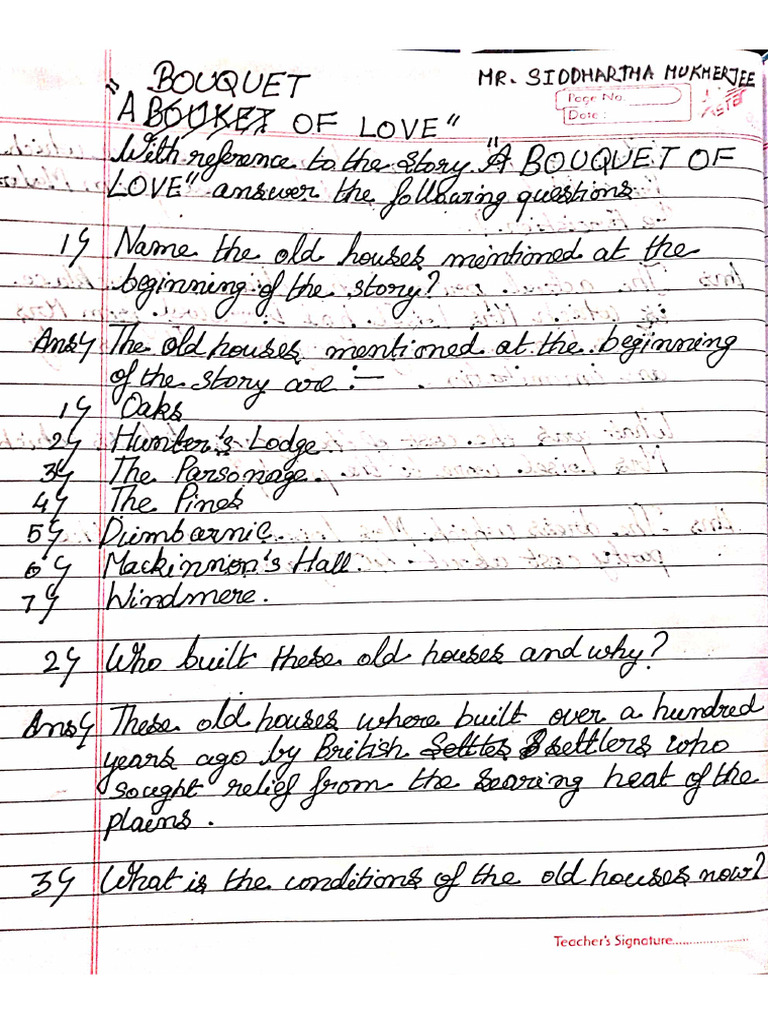 MR. SIDDHARTHA MUKHERJEE
Page No.
Date :
" BOUQUET
A BOUKET OF LOVE"
With reference to the story "A BOUQUET OF
LOVE" answer the following questions
1) Name the old houses mentioned at the
beginning of the story?
Ans) The old houses mentioned at the beginning
of the story are :—
1) Oaks
2) Hunter's Lodge.
3) The Parsonage.
4) The Pines
5) Dumbarnie.
6) Mackinnon's Hall.
7) Windmere.
2) Who built these old houses and why?
Ans) These old houses where built over a hundred
years ago by British settlers who
sought relief from the searing heat of the
plains.
3) What is the conditions of the old houses now?
Teacher's Signature........................